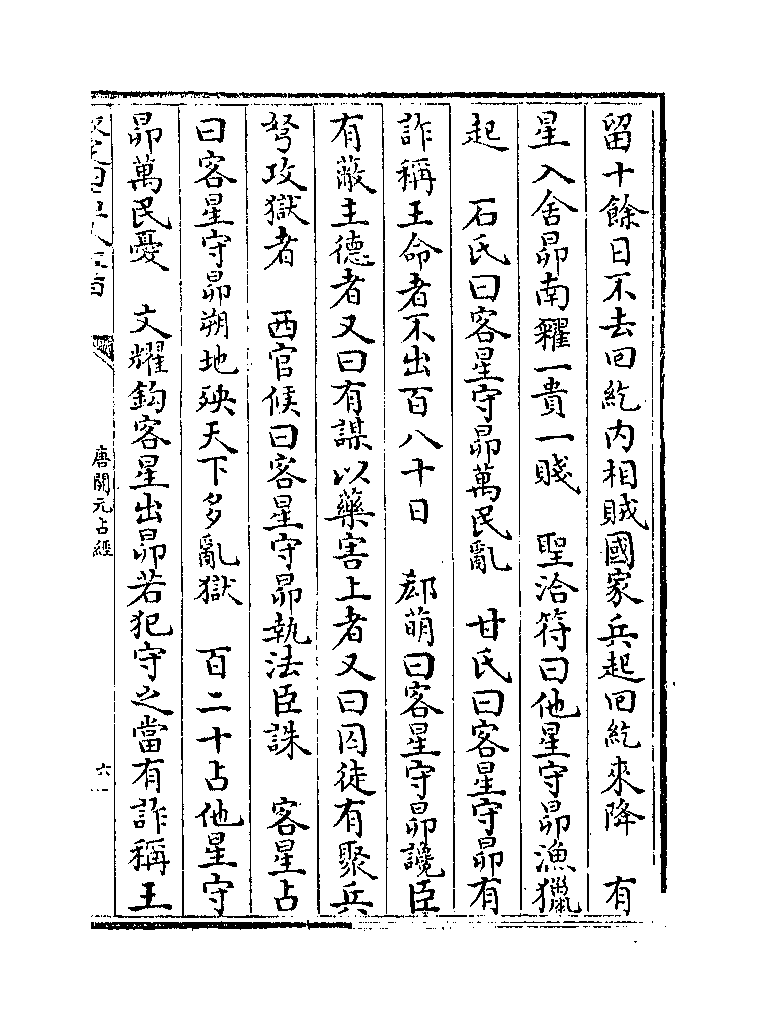 留十餘日不去回紇内相賊國家兵起回紇來降　有
星入舍昴南糴一貴一賤　聖洽符曰他星守昴漁獵
起　石氏曰客星守昴萬民亂　甘氏曰客星守昴有
詐稱王命者不出百八十日　郄萌曰客星守昴讒臣
有蔽主德者又曰有謀以藥害上者又曰囚徒有聚兵
弩攻獄者　西官候曰客星守昴執法臣誅　客星占
曰客星守昴朔地殃天下多亂獄　百二十占他星守
昴萬民憂　文耀鈎客星出昴若犯守之當有詐稱王
唐開元占經
六